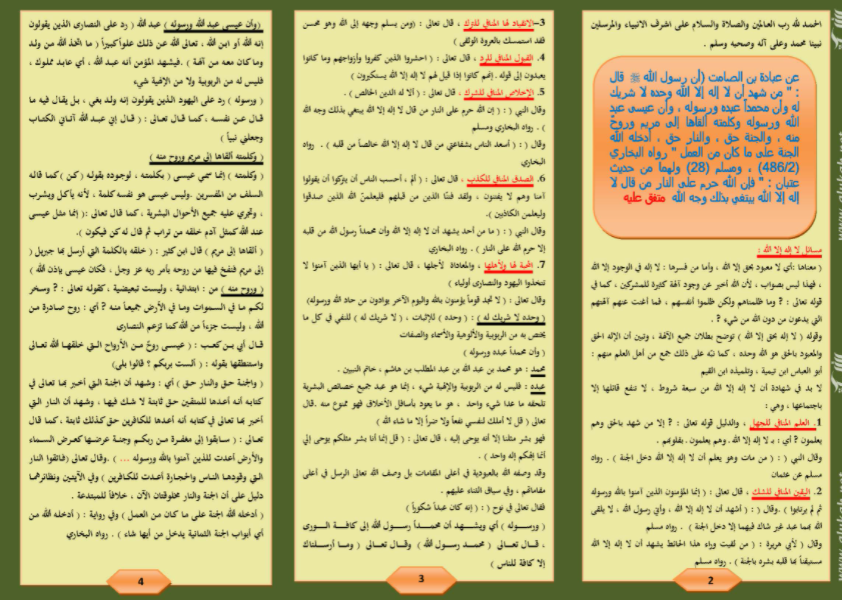 الحمد لله رب العالمين والصلاة والسلام على اشرف الانبياء والمرسلين
نبينا محمد وعلى آله وصحبه وسلم .
عن عبادة بن الصامت (أن رسول الله ﷺ قال
: " من شهد أن لا إله إلا الله وحده لا شريك
له وأن محمداً عبده ورسوله ، وأن عيسى عبد
الله ورسوله وكلمته ألقاها إلى مريم وروحٌ
منه ، والجنة حق ، والنار حق ، أدخله الله
الجنة على ما كان من العمل " رواه البخاري
(486/2) ، ومسلم (28) ولهما من حديث
عتبان : " فإن الله حرم على النار من قال لا
إله إلا الله يبتغي بذلك وجه الله متفق عليه
مسائل لا إله إلا الله :
( معناها :أي لا معبود بحق إلا الله ، وأما من فسرها : لا إله في الوجود إلا الله
، فهذا ليس بصواب ، لأن الله أخبر عن وجود آلهة كثيرة للمشركين ، كما في
قوله تعالى : ? وما ظلمناهم ولكن ظلموا أنفسهم ، فما أغنت عنهم آلهتهم
التي يدعون من دون الله من شيء ? .
وقوله ( لا إله بحق إلا الله ) توضح بطلان جميع الآلهة ، وتبين أن الإله الحق
والمعبود بالحق هو الله وحده ، كما نبّه على ذلك جمع من أهل العلم منهم :
أبو العباس ابن تيمية ، وتلميذه ابن القيم
لا بد في شهادة أن لا إله إلا الله من سبعة شروط ، لا تنفع قائلها إلا
باجتماعها ، وهي :
1. العلم المنافي للجهل ، والدليل قوله تعالى : ? إلا من شهد بالحق وهم
يعلمون ? أي : بـ لا إله إلا الله . وهم يعلمون . بقلوبهم .
وقال النبي ( : ( من مات وهو يعلم أن لا إله إلا الله دخل الجنة ) . رواه
مسلم عن عثمان
2. اليقين المنافي للشك ، قال تعالى : ( إنما المؤمنون الذين آمنوا بالله ورسوله
ثم لم يرتابوا ) .وقال : ( : (أشهد أن لا إله إلا الله ، وأني رسول الله ، لا يلقى
الله بهما عبد غير شاك فيهما إلا دخل الجنة ) . رواه مسلم
وقال ( لأبي هريرة : ( من لقيت وراء هذا الحائط يشهد أن لا إله إلا الله
مستيقناً بها قلبه بشره بالجنة ) . رواه مسلم
2
3-الانقياد لها المنافي للترك ، قال تعالى : (ومن يسلم وجهه إلى الله وهو محسن
فقد استمسك بالعروة الوثقى )
4. القبول المنافي للرد ، قال تعالى : ( احشروا الذين كفروا وأزواجهم وما كانوا
يعبدون إلى قوله . إنهم كانوا إذا قيل لهم لا إله إلا الله يستكبرون )
5. الإخلاص المنافي للشرك ، قال تعالى : ( ألا لله الدين الخالص ) .
وقال النبي ( : ( إن الله حرم على النار من قال لا إله إلا الله يبتغي بذلك وجه الله
) . رواه البخاري ومسلم
وقال ( : ( أسعد الناس بشفاعتي من قال لا إله إلا الله خالصاً من قلبه ) . رواه
البخاري
6. الصدق المنافي للكذب ، قال تعالى : ( ألم ، أحسب الناس أن يتركوا أن يقولوا
آمنا وهم لا يفتنون ، ولقد فتنّا الذين من قبلهم فليعلمنّ الله الذين صدقوا
وليعلمن الكاذبين ).
وقال النبي ( : ( ما من أحد يشهد أن لا إله إلا الله وأن محمداً رسول الله من قلبه
إلا حرم الله على النار ) . رواه البخاري.
7. المحبة لها ولأهلها ، والمعاداة لأجلها ، قال تعالى : ( يا أيها الذين آمنوا لا
تتخذوا اليهود والنصارى أولياء )
وقال تعالى : ( لا تجد قوماً يؤمنون بالله واليوم الآخر يوادون من حاد الله ورسوله)
( وحده لا شريك له ) : ( وحده ) للإثبات ، ( لا شريك له ) للنفي في كل ما
يختص به من الربوبية والألوهية والأسماء والصفات
( وأن محمداً عبده ورسوله )
محمد : هو محمد بن عبد الله بن عبد المطلب بن هاشم ، خاتم النبيين .
عبده : فليس له من الربوبية والإلهية شيء ، إنما هو عبد جميع خصائص البشرية
تلحقه ما عدا شيء واحد ، هو ما يعود بأسافل الأخلاق فهو ممنوع منه .قال
تعالى ( قل لا أملك لنفسي نفعاً ولا ضراً إلا ما شاء الله )
فهو بشر مثلنا إلا أنه يوحى إليه ، قال تعالى : ( قل إنما أنا بشر مثلكم يوحى إلي
أنما إلهكم إله واحد ) .
وقد وصفه الله بالعبودية في أعلى المقامات بل وصف الله تعالى الرسل في أعلى
مقاماتهم ، وفي سياق الثناء عليهم .
فقال تعالى في نوح ( : ( إنه كان عبداً شكوراً )
( ورسوله ) أي ويشهد أن محمداً رسول الله إلى كافة الورى
، قال تعالى ( محمد رسول الله ) وقال تعالى ( وما أرسلناك
إلا كافة للناس )
3
( وأن عيسى عبد الله ورسوله ) عبد الله ( رد على النصارى الذين يقولون
إنه الله أو ابن الله ، تعالى الله عن ذلك علواً كبيراً ( ما اتخذ الله من ولد
وما كان معه من آلهة ) .فيشهد المؤمن أنه عبد الله ، أي عابد مملوك ،
فليس له من الربوبية ولا من الإلهية شيء
( ورسوله ) رد على اليهود الذين يقولون إنه ولد بغي ، بل يقال فيه ما
قال عن نفسه ، كما قال تعالى : ( قال إني عبد الله آتاني الكتاب
وجعلني نبياً )
( وكلمته ألقاها إلى مريم وروح منه )
( وكلمته ) إنما سمي عيسى ( بكلمته ، لوجوده بقوله ( كن ) كما قاله
السلف من المفسرين .وليس عيسى هو نفسه كلمة ، لأنه يأكل ويشرب
، وتجري عليه جميع الأحوال البشرية ، كما قال تعالى :( إنما مثل عيسى
عند الله كمثل آدم خلقه من تراب ثم قال له كن فيكون ).
( ألقاها إلى مريم ) قال ابن كثير : ( خلقه بالكلمة التي أرسل بها جبريل (
إلى مريم فنفخ فيها من روحه بأمر ربه عز وجل ، فكان عيسى بإذن الله )
( وروح منه ) من : ابتدائية ، وليست تبعيضية ، كقوله تعالى : ? وسخر
لكم ما في السموات وما في الأرض جميعاً منه ? أي : روح صادرة من
الله ، وليست جزءاً من الله كما تزعم النصارى
قال أبي بن كعب : ( عيسى روحٌ من الأرواح التي خلقها الله تعالى
واستنطقها بقوله : ( ألست بربكم ؟ قالوا بلى)
( والجنة حق والنار حق ) أي : وشهد أن الجنة التي أخبر بها تعالى في
كتابه أنه أعدها للمتقين حق ثابتة لا شك فيها ، وشهد أن النار التي
أخبر بها تعالى في كتابه أنه أعدها للكافرين حق كذلك ثابتة . كما قال
تعالى : ( سابقوا إلى مغفرة من ربكم وجنة عرضها كعرض السماء
والأرض أعدت للذين آمنوا بالله ورسوله ... ) .وقال تعالى (فاتقوا النار
التي وقودها الناس والحجارة أعدت للكافرين ) وفي الآيتين ونظائرهما
دليل على أن الجنة والنار مخلوقتان الآن ، خلافاً للمبتدعة .
( أدخله الله الجنة على ما كان من العمل ) وفي رواية : ( أدخله الله من
أي أبواب الجنة الثمانية يدخل من أيها شاء ) . رواه البخاري
4